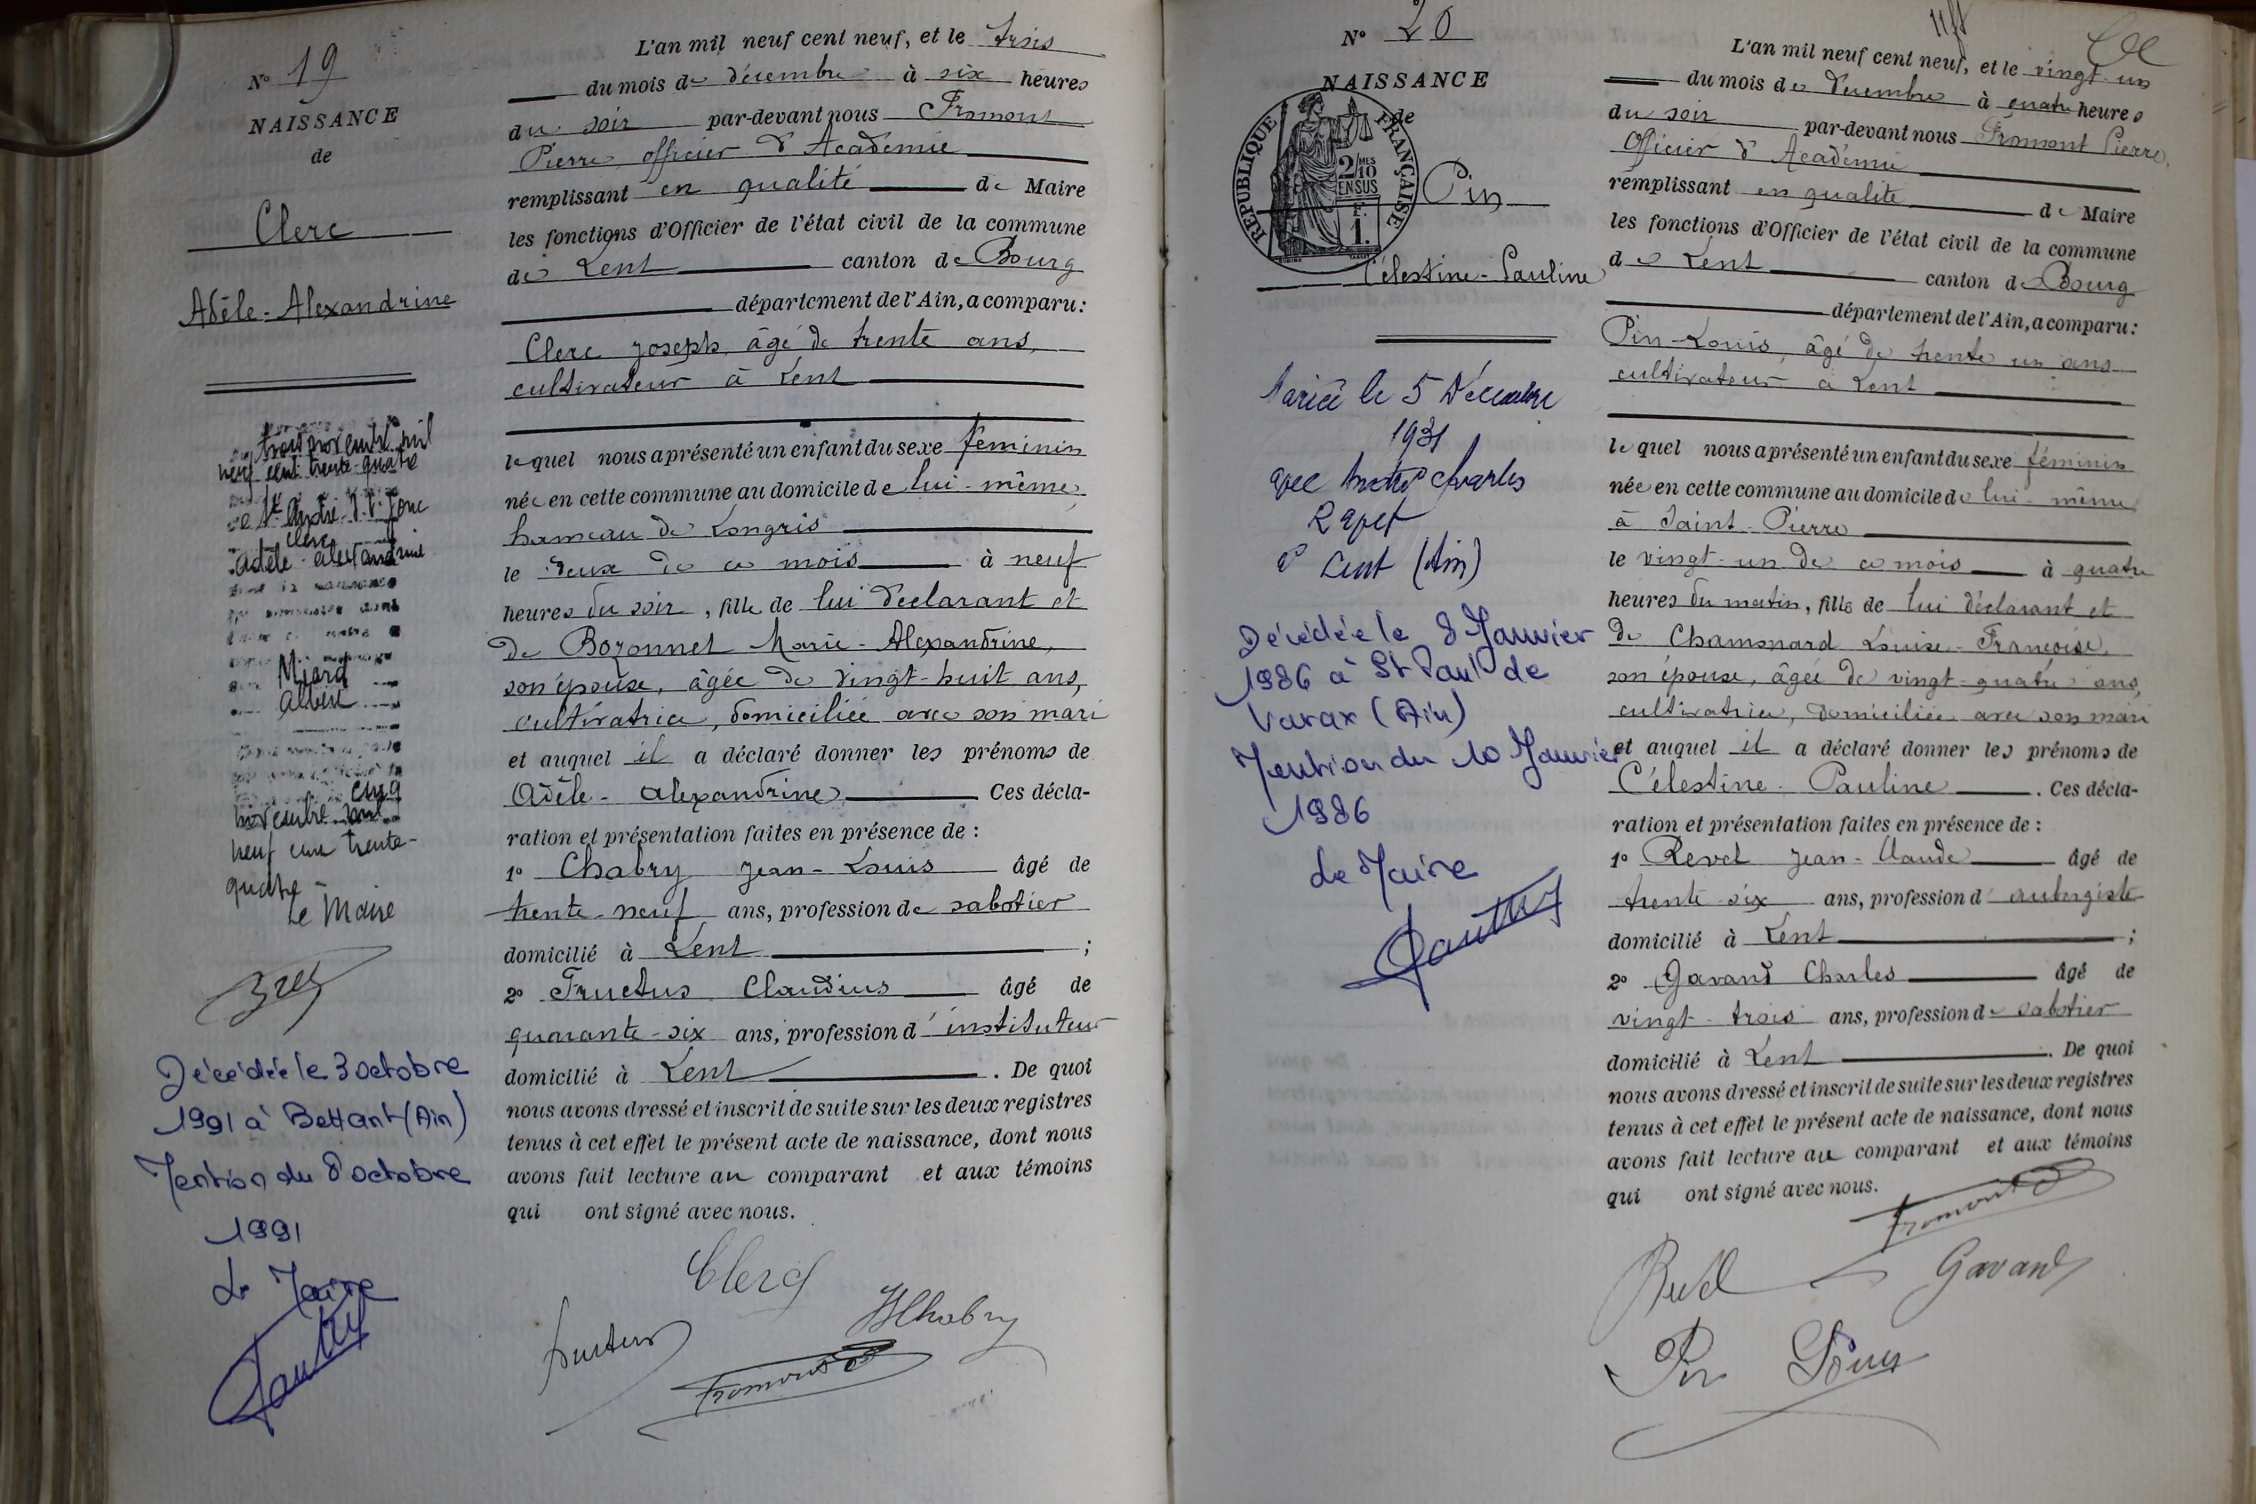 N° 19
NAISSANCE
de
Clerc
Adèle-Alexandrine
trois novembre mil
neuf cent trente-quatre
St André
Clerc
Adèle-Alexandrine
Miard
Albert
cinq
novembre mil
neuf cent trente-
quatre
Le Maire
Décédée le 3 octobre
1991 à Bettant (Ain)
Mention du 8 octobre
1991
Le Maire
L'an mil neuf cent neuf, et le trois
du mois de décembre à six heures
du soir par-devant nous Fromont
Pierre, officier d'Académie
remplissant en qualité de Maire
les fonctions d'Officier de l'état civil de la commune
de Lent canton de Bourg
département de l'Ain, a comparu:
Clerc Joseph, âgé de trente ans,
cultivateur à Lent
lequel nous a présenté un enfant du sexe féminin
née en cette commune au domicile de lui-même,
hameau de Longris
le deux de ce mois à neuf
heures du soir, fille de lui déclarant et
de Bozonnet Marie-Alexandrine,
son épouse, âgée de vingt-huit ans,
cultivatrice, domiciliée avec son mari
et auquel il a déclaré donner les prénoms de
Adèle-Alexandrine Ces décla-
ration et présentation faites en présence de :
1° Chabry Jean-Louis âgé de
trente-neuf ans, profession de sabotier
domicilié à Lent ;
2° Fructus Claudius âgé de
quarante-six ans, profession d'instituteur
domicilié à Lent . De quoi
nous avons dressé et inscrit de suite sur les deux registres
tenus à cet effet le présent acte de naissance, dont nous
avons fait lecture au comparant et aux témoins
qui ont signé avec nous.
Clerc
Fructus
Chabry
Fromont
N° 20
NAISSANCE
de
REPUBLIQUE FRANÇAISE
2/10 EN SUS
1F.
Pin
Célestine-Pauline
Mariée le 5 Décembre
1931
avec
Charles
Lent (Ain)
Décédée le 8 Janvier
1986 à St Paul de
Varax (Ain)
Mention du 10 Janvier
1986
Le Maire
L'an mil neuf cent neuf, et le vingt-un
du mois de décembre à quatre heures
du soir par-devant nous Fromont Pierre,
Officier d'Académie
remplissant en qualité de Maire
les fonctions d'Officier de l'état civil de la commune
de Lent canton de Bourg
département de l'Ain, a comparu:
Pin Louis, âgé de trente un ans
cultivateur à Lent
lequel nous a présenté un enfant du sexe féminin
née en cette commune au domicile de lui-même
à Saint-Pierre
le vingt-un de ce mois à quatre
heures du matin, fille de lui déclarant et
de Chamonard Louise-Françoise,
son épouse, âgée de vingt-quatre ans,
cultivatrice, domiciliée avec son mari
et auquel il a déclaré donner les prénoms de
Célestine-Pauline . Ces décla-
ration et présentation faites en présence de :
1° Revel Jean-Claude âgé de
trente-six ans, profession d'aubergiste
domicilié à Lent ;
2° Gavand Charles âgé de
vingt-trois ans, profession de sabotier
domicilié à Lent . De quoi
nous avons dressé et inscrit de suite sur les deux registres
tenus à cet effet le présent acte de naissance, dont nous
avons fait lecture au comparant et aux témoins
qui ont signé avec nous.
Fromont
Revel
Gavand
Pin Louis